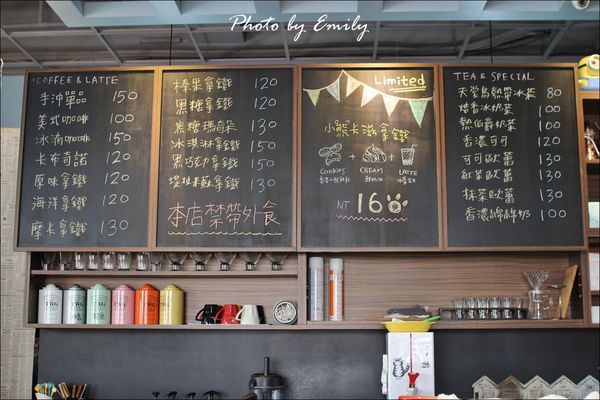 Photo by Emily
COFFEE & LATTE
手沖單品 150
美式咖啡 100
冰滴咖啡 150
卡布奇諾 120
原味拿鐵 120
海洋拿鐵 130
摩卡拿鐵 130
榛果拿鐵 120
黑糖拿鐵 120
焦糖瑪奇朵 130
冰淇淋拿鐵 150
黑巧克力拿鐵 150
提拉米蘇拿鐵 130
本店禁帶外食
Limited
小熊卡滋拿鐵
Cookies
CREAM
LATTE
NT 160
TEA & SPECIAL
天堂鳥熱帶冰茶 80
焙香冰奶茶 100
熱伯爵奶茶 100
香濃可可 120
可可歐蕾 130
紅茶歐蕾 130
抹茶歐蕾 130
香濃綿綿奶 100
TWG
TWG
TWG
TWG
TWG